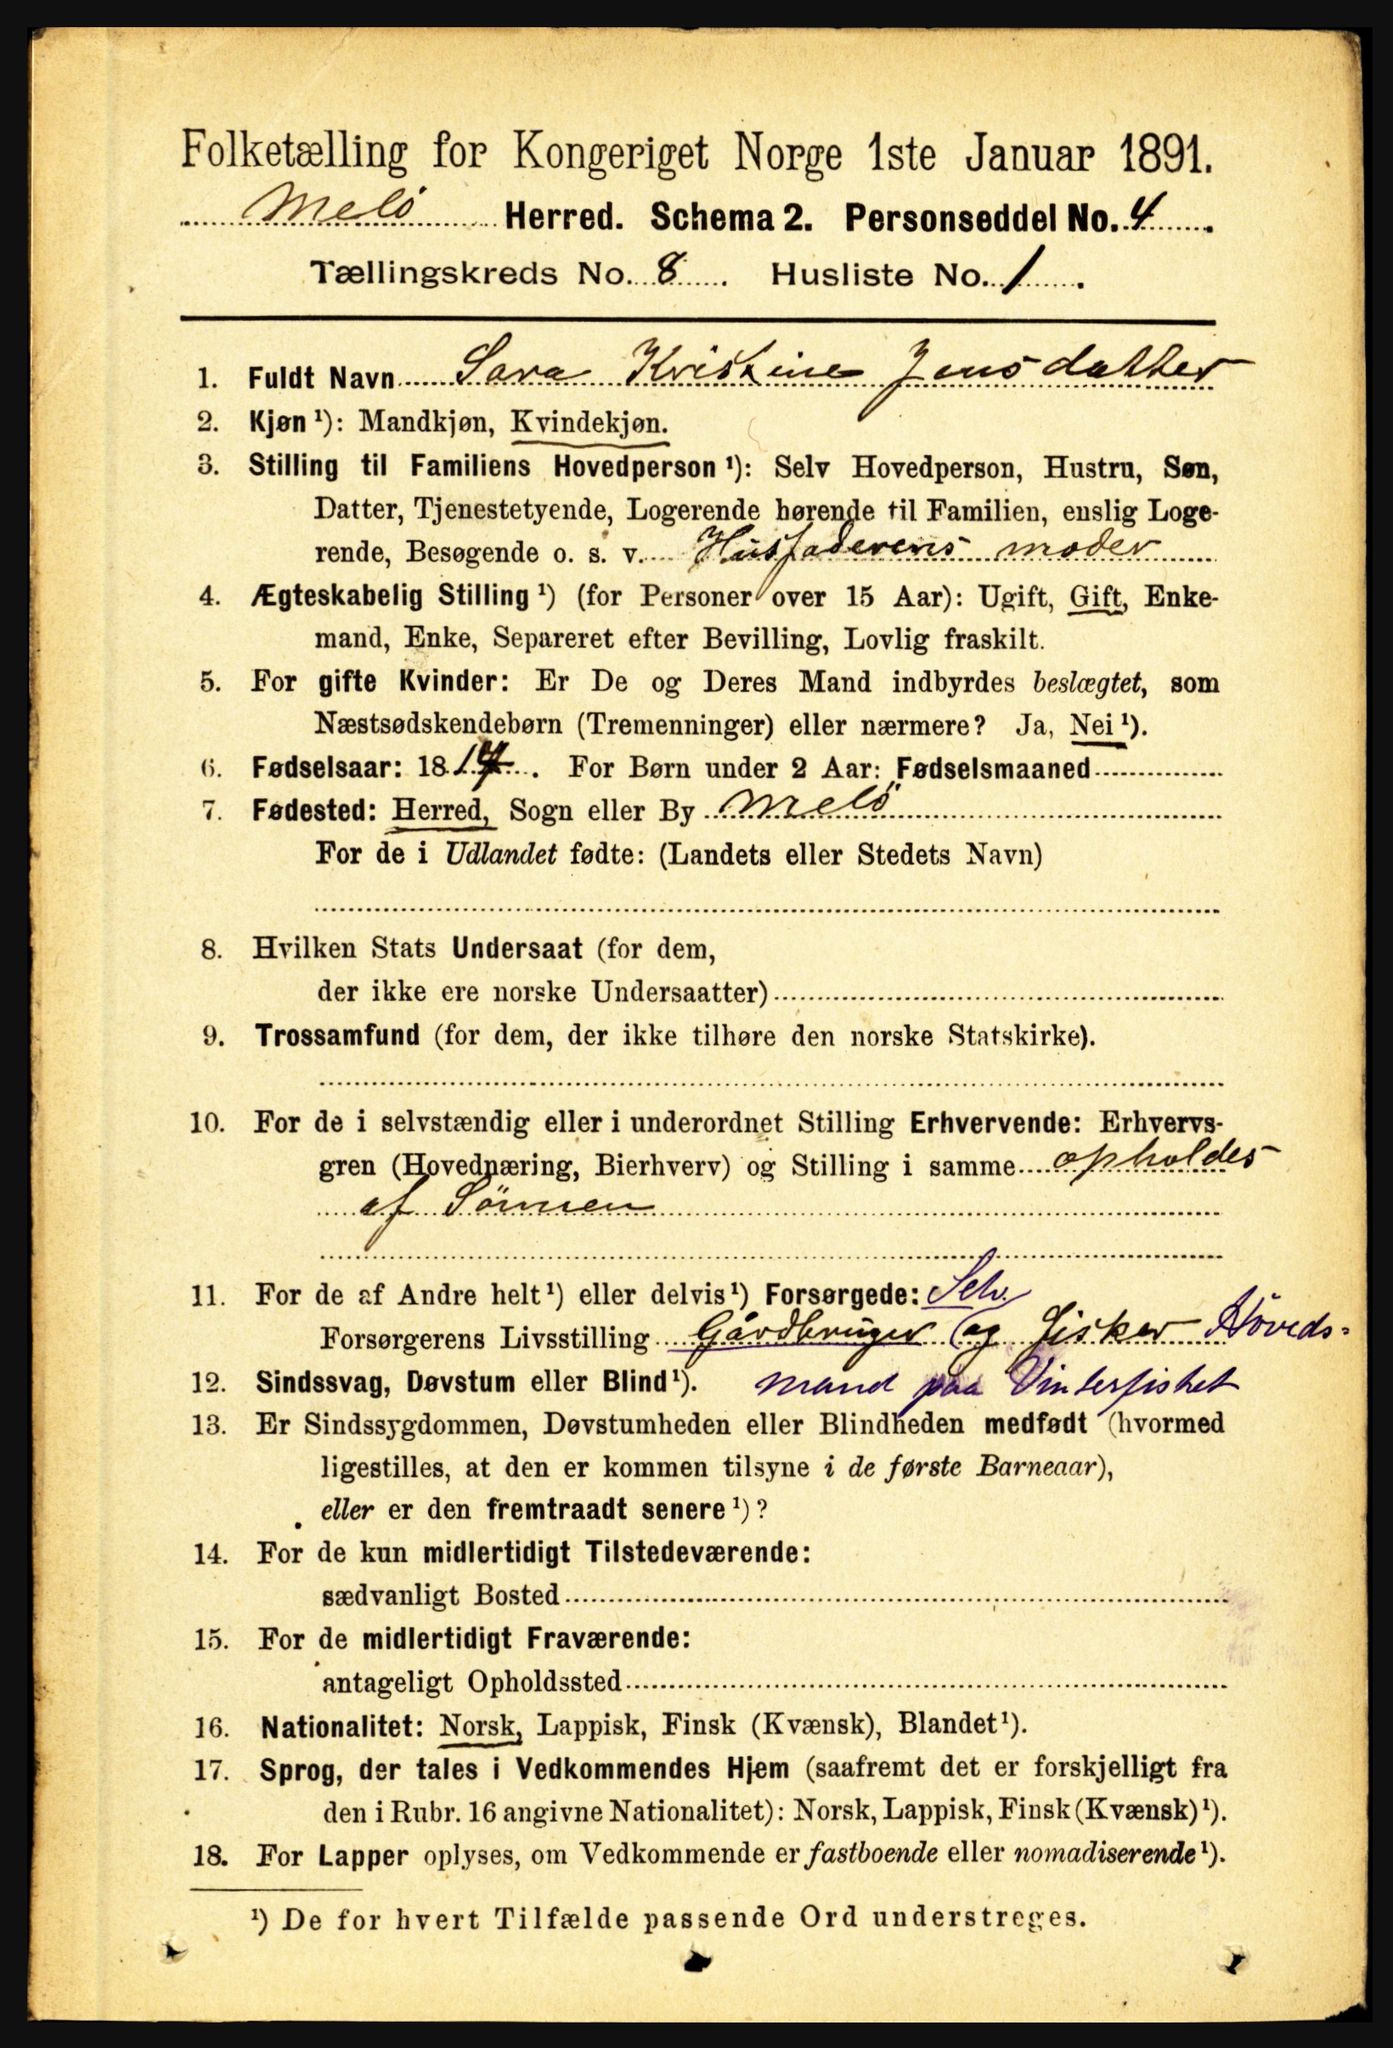 Folketælling for Kongeriget Norge 1ste Januar 1891.
Melö Herred. Schema 2. Personseddel No. 4.
Tællingskreds No. 8. Husliste No. 1.
1. Fuldt Navn Sara Kristine Jensdatter
2. Kjøn ¹): Mandkjøn, Kvindekjøn.
3. Stilling til Familiens Hovedperson ¹): Selv Hovedperson, Hustru, Søn,
Datter, Tjenestetyende, Logerende hørende til Familien, enslig Loge-
rende, Besøgende o. s. v. Husfaderens moder
4. Ægteskabelig Stilling ¹) (for Personer over 15 Aar): Ugift, Gift, Enke-
mand, Enke, Separeret efter Bevilling, Lovlig fraskilt.
5. For gifte Kvinder: Er De og Deres Mand indbyrdes beslægtet, som
Næstsødskendebørn (Tremenninger) eller nærmere? Ja, Nei ¹).
6. Fødselsaar: 18 . For Børn under 2 Aar: Fødselsmaaned
7. Fødested: Herred, Sogn eller By Melö
For de i Udlandet fødte: (Landets eller Stedets Navn)
8. Hvilken Stats Undersaat (for dem,
der ikke ere norske Undersaatter)
9. Trossamfund (for dem, der ikke tilhøre den norske Statskirke).
10. For de i selvstændig eller i underordnet Stilling Erhvervende: Erhvervs-
gren (Hovednæring, Bierhverv) og Stilling i samme opholdes
af Sönnen
11. For de af Andre helt ¹) eller delvis ¹) Forsørgede: Selv.
Forsørgerens Livsstilling Gårdbruger og fisker Höveds-
12. Sindssvag, Døvstum eller Blind ¹). mand paa Vinterfisket
13. Er Sindssygdommen, Døvstumheden eller Blindheden medfødt (hvormed
ligestilles, at den er kommen tilsyne i de første Barneaar),
eller er den fremtraadt senere ¹)?
14. For de kun midlertidigt Tilstedeværende:
sædvanligt Bosted
15. For de midlertidigt Fraværende:
antageligt Opholdssted
16. Nationalitet: Norsk, Lappisk, Finsk (Kvænsk), Blandet ¹).
17. Sprog, der tales i Vedkommendes Hjem (saafremt det er forskjelligt fra
den i Rubr. 16 angivne Nationalitet): Norsk, Lappisk, Finsk (Kvænsk) ¹).
18. For Lapper oplyses, om Vedkommende er fastboende eller nomadiserende ¹).
¹) De for hvert Tilfælde passende Ord understreges.